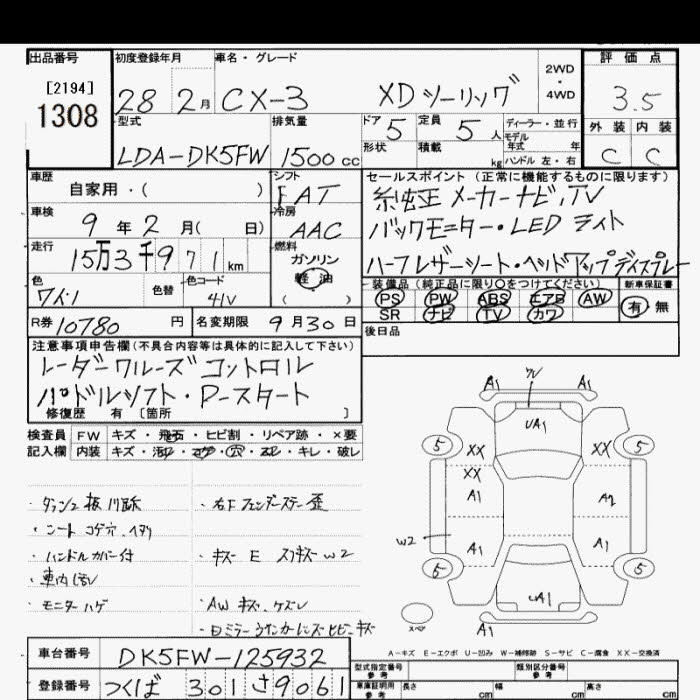 出品番号
[2194]
1308
初度登録年月
28 2月
車名・グレード
CX-3 XDツーリング
2WD
・
4WD
評価点
3.5
型式
LDA-DK5FW
排気量
1500cc
ドア 5
定員 5人
形状
積載 kg
ディーラー・並行
モデル
年式 年
ハンドル 左・右
外装 内装
C C
車歴
自家用・( )
シフト
FAT
車検
9年2月( 日)
冷房
AAC
走行
15万3千971km
燃料
ガソリン
軽油
( )
色
ワイン
色替
色コード
41V
R券 10780円
名変期限 9月30日
セールスポイント(正常に機能するものに限ります)
純正メーカーナビ,TV
バックモニター・LEDライト
ハーフレザーシート・ヘッドアップディスプレー
装備品(純正品に限り○をつけてください)
新車保証書
PS PW ABS エアB AW
SR ナビ TV カワ
有・無
後日品
注意事項申告欄(不具合内容等は具体的に記入して下さい)
レーダークルーズコントロル
パドルシフト・Pースタート
修復歴 有 [箇所 ]
検査員
記入欄
FW キズ・飛石・ヒビ割・リペア跡・×要
内装 キズ・汚レ・コゲ・穴・スレ・キレ・破レ
・シート コゲ穴
・ハンドルカバー付
・車内汚レ
・モニターハゲ
・右Fフェンダーステー歪
・キズ E スリキズ W2
・AW キズ、ケズレ
A1 A1
UA1
5 XX XX 5
XX
A1 A2
W2 A1 A1
5 5
UA1
スペア
A1
A-キズ E-エクボ U-凹み W-補修跡 S-サビ C-腐食 XX-交換済
車台番号
DK5FW-125932
登録番号
つくば 301 さ9061
型式指定番号
参考
類別区分番号
参考
車庫証明用
参考
長さ cm 幅 cm 高さ cm